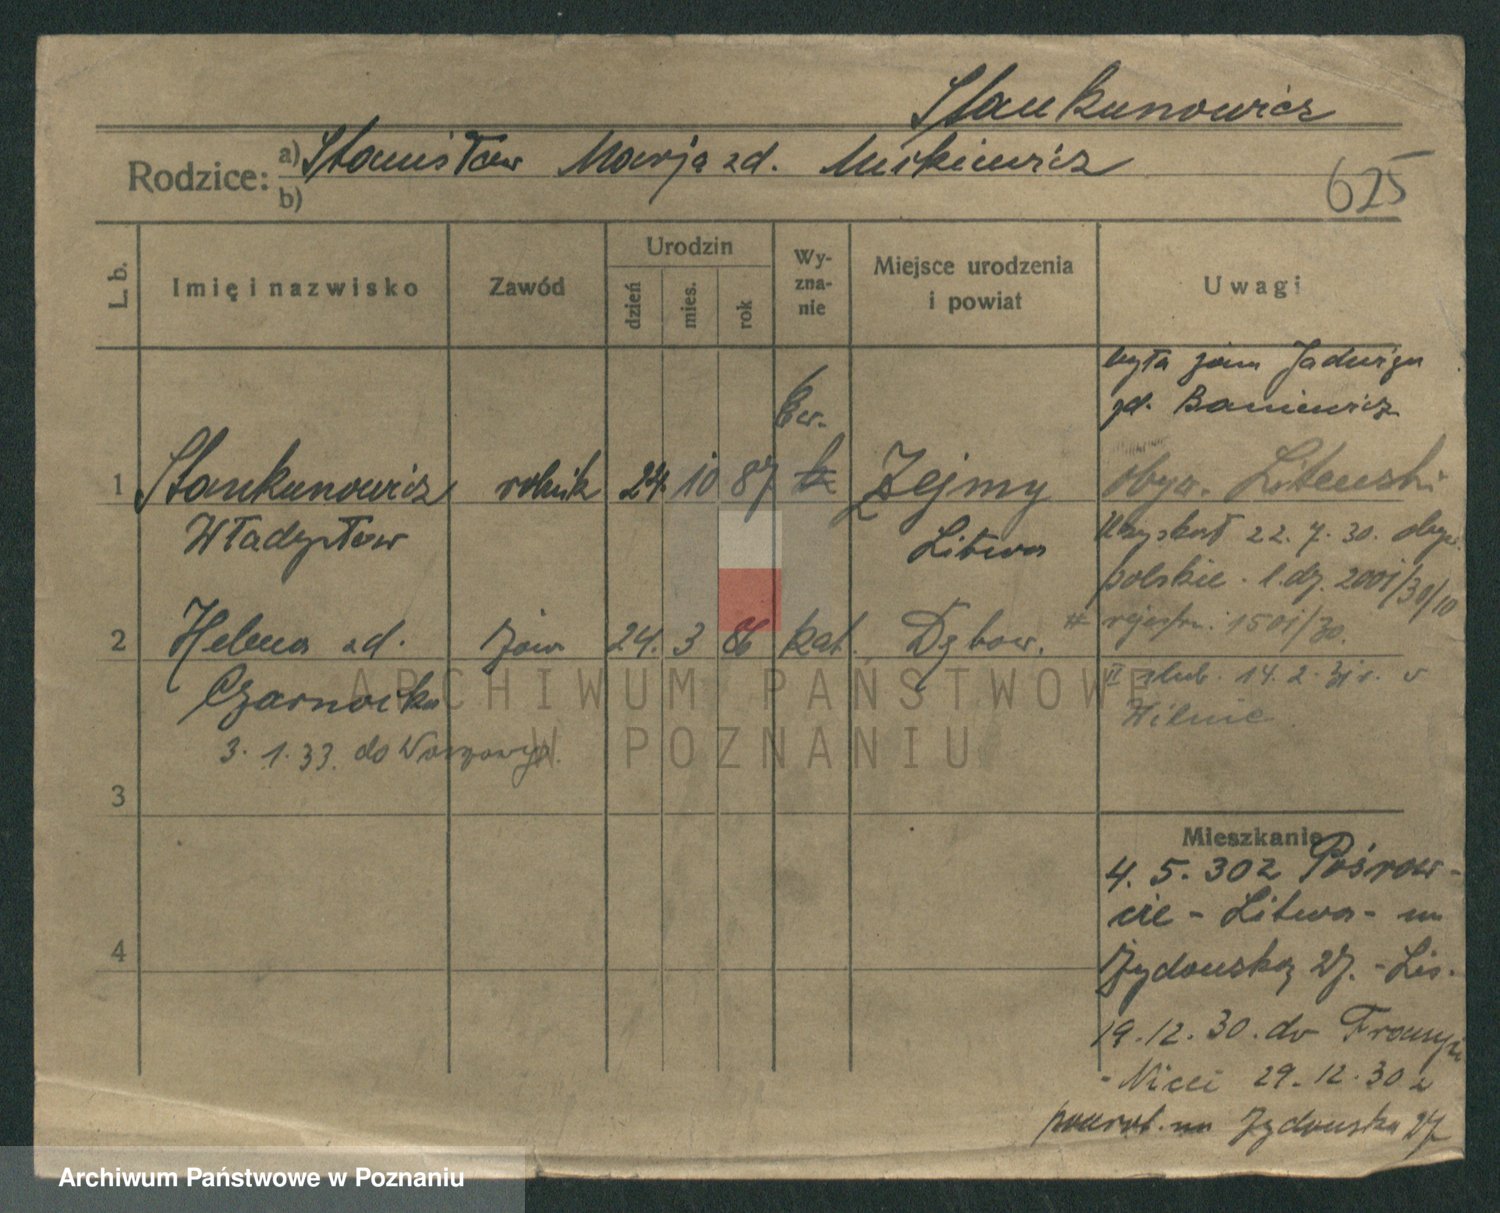 Stankunowicz
Rodzice: a) Stanisław Marja zd. Mickiewicz
b)
625
L. b.
Imię i nazwisko
Zawód
Urodzin
dzień
mies.
rok
Wy-
zna-
nie
Miejsce urodzenia
i powiat
Uwagi
była żona Jadwiga
zd. Baniewicz
Ew.
1 Stankunowicz rolnik 24. 10 87 k Zejmy obyw. Litewski
Władysław Litwa
Uzyskał 22. 7. 30. obyw.
polskie. l. dz. 2001/30/10
# rejestr. 1501/30.
2 Helena zd. żona 24. 3 86 kat. Dębow.
Czarnocka
II ślub. 14. 2. 31 r. w
Wilnie
3. 1. 33. do Warszawy.
3
Mieszkanie
4. 5. 30 z Pośrow-
cie - Litwa - na
4
Żydowską 27. - Lis.
19. 12. 30. do Francji
- Nicei 29. 12. 30 z
powrot. na Żydowska 27
ARCHIWUM PAŃSTWOWE
W POZNANIU
Archiwum Państwowe w Poznaniu